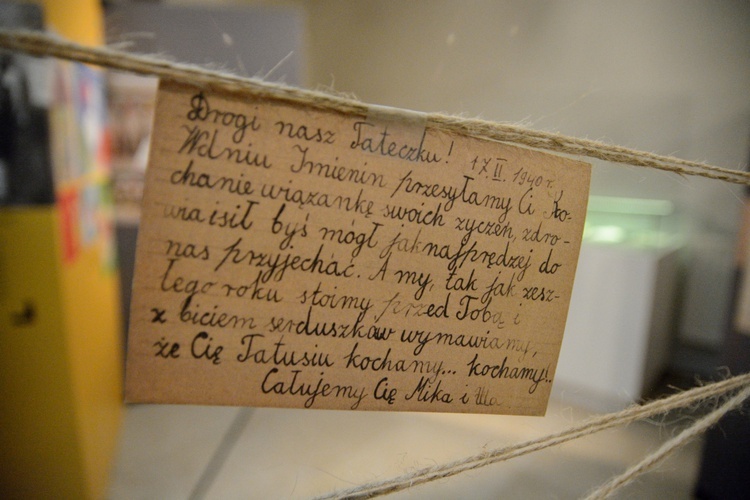 Drogi nasz Tateczku! 17.II.1940 r.
W dniu Imienin przesyłamy Ci Ko-
chanie wiązankę swoich życzeń, zdro-
wia i sił byś mógł jaknajprędzej do
nas przyjechać. A my, tak jak zesz-
łego roku stoimy przed Tobą i
z biciem serduszków wymawiamy,
że Cię Tatusiu kochamy... kochamy!..
Całujemy Cię Mika i